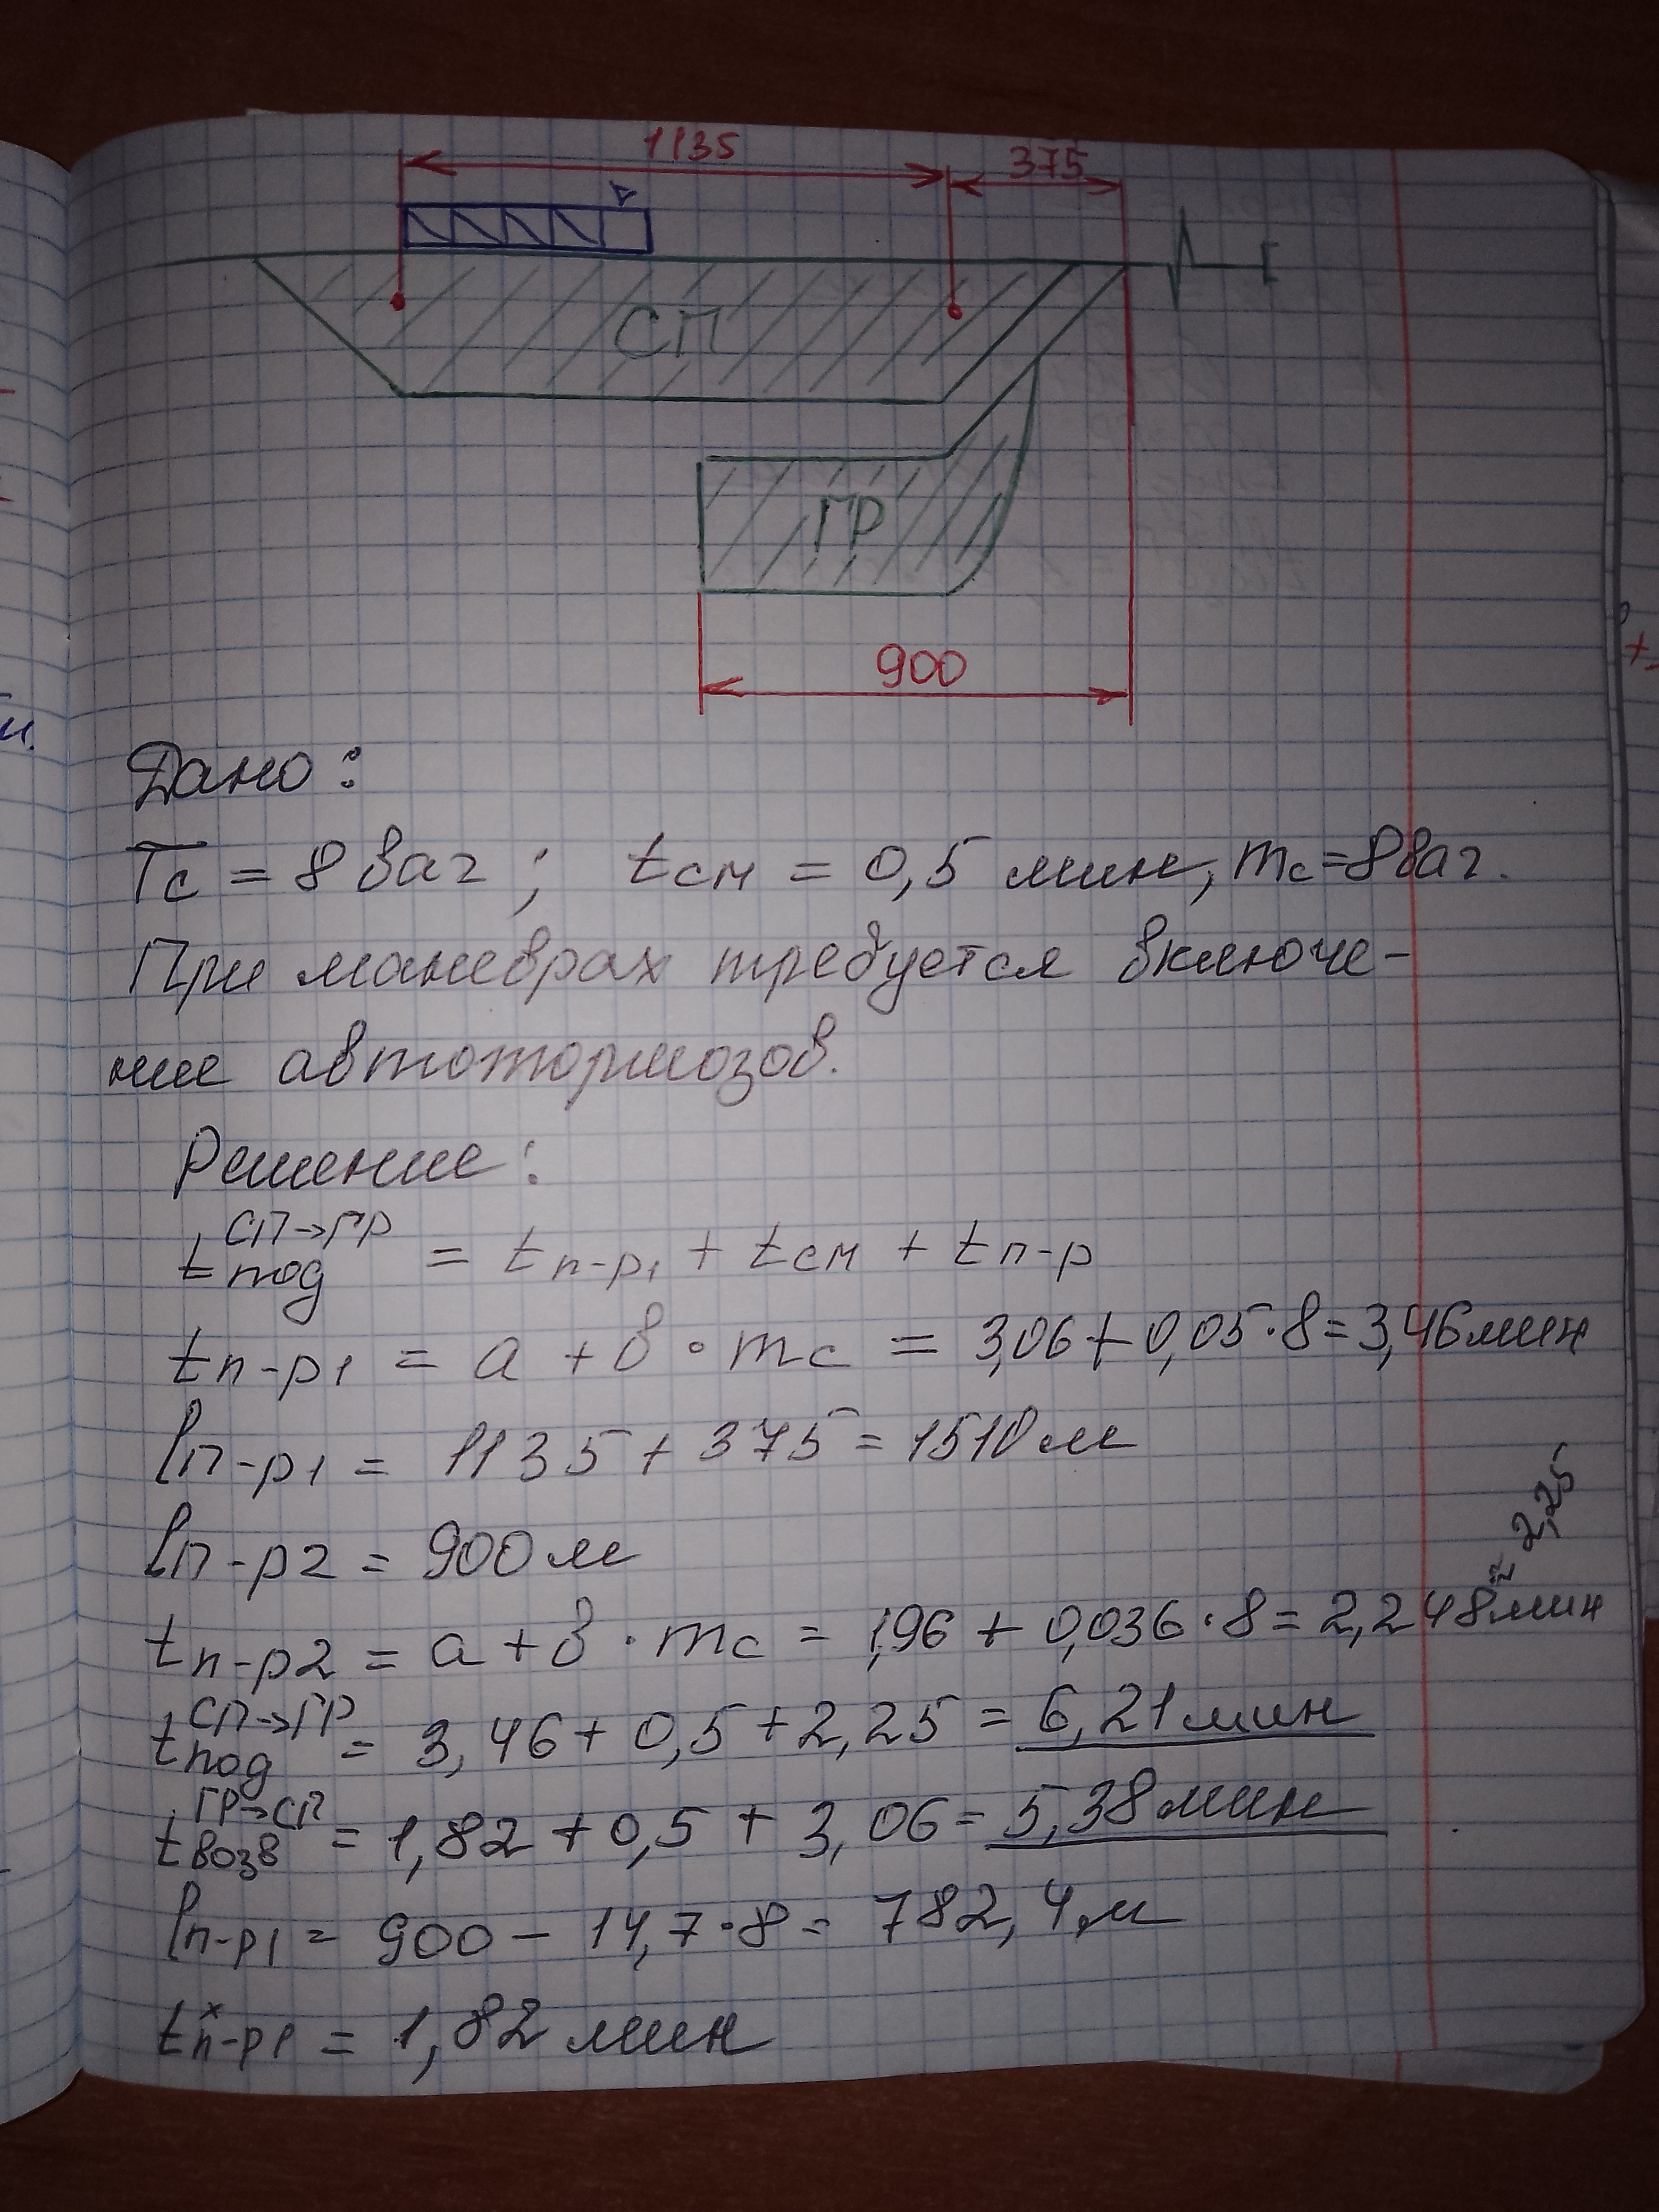 1135
375
СП
ГР
900
Дано:
Тс = 8 ваг; tсм = 0,5 мин, mс=8ваг.
При маневрах требуется включе-
ние автотормозов.
Решение:
tпод СП→ГР = tп-р1 + tсм + tп-р
tп-р1 = a + в · mс = 3,06 + 0,05·8 = 3,46мин
lп-р1 = 1135 + 375 = 1510 м
lп-р2 = 900 м
tп-р2 = a + в · mс = 1,96 + 0,036·8 = 2,248мин ≈ 2,25
tпод СП→ГР = 3,46 + 0,5 + 2,25 = 6,21 мин
tвозв ГР→СП = 1,82 + 0,5 + 3,06 = 5,38 мин
lп-р1 = 900 - 14,7·8 = 782,4м
tп-р1 х = 1,82 мин